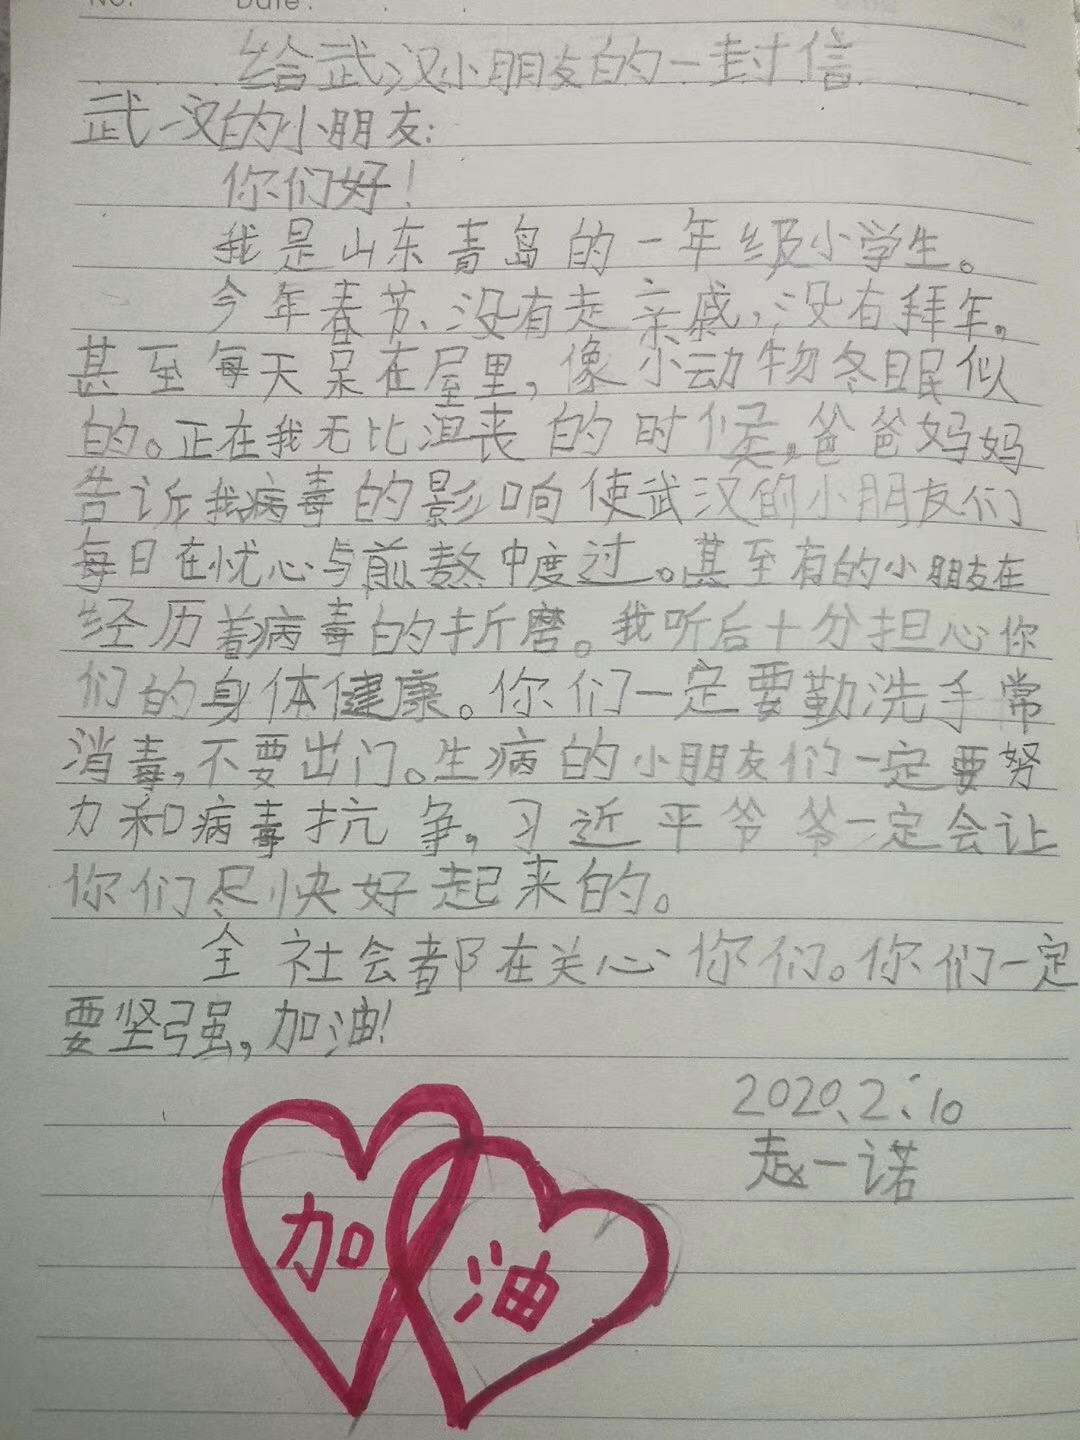 No.    Date.
给武汉小朋友的一封信
武汉的小朋友:
你们好!
我是山东青岛的一年级小学生。
今年春节、没有走亲戚,没有拜年。
甚至每天呆在屋里,像小动物冬眠似
的。正在我无比沮丧的时候,爸爸妈妈
告诉我病毒的影响使武汉的小朋友们
每日在忧心与煎熬中度过。甚至有的小朋友在
经历着病毒的折磨。我听后十分担心你
们的身体健康。你们一定要勤洗手常
消毒,不要出门。生病的小朋友们一定要努
力和病毒抗争,习近平爷爷一定会让
你们尽快好起来的。
全社会都在关心你们。你们一定
要坚强,加油!
2020.2.10
赵一诺
加油